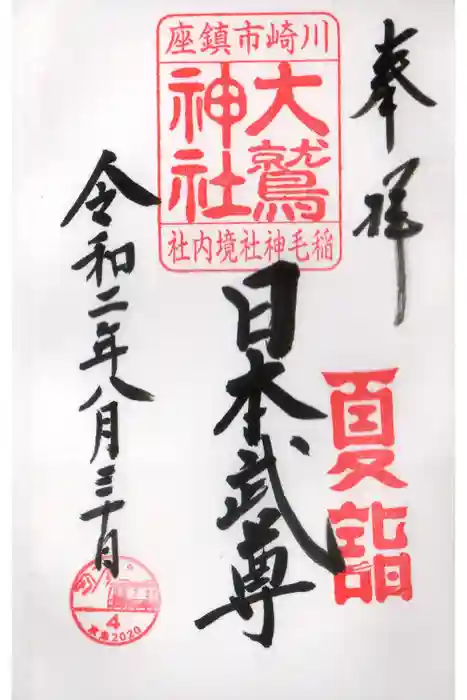 奉拝
川崎市鎮座
大鷲
神社
稲毛神社境内社
夏詣
日本武尊
令和二年八月三十日
4
2020